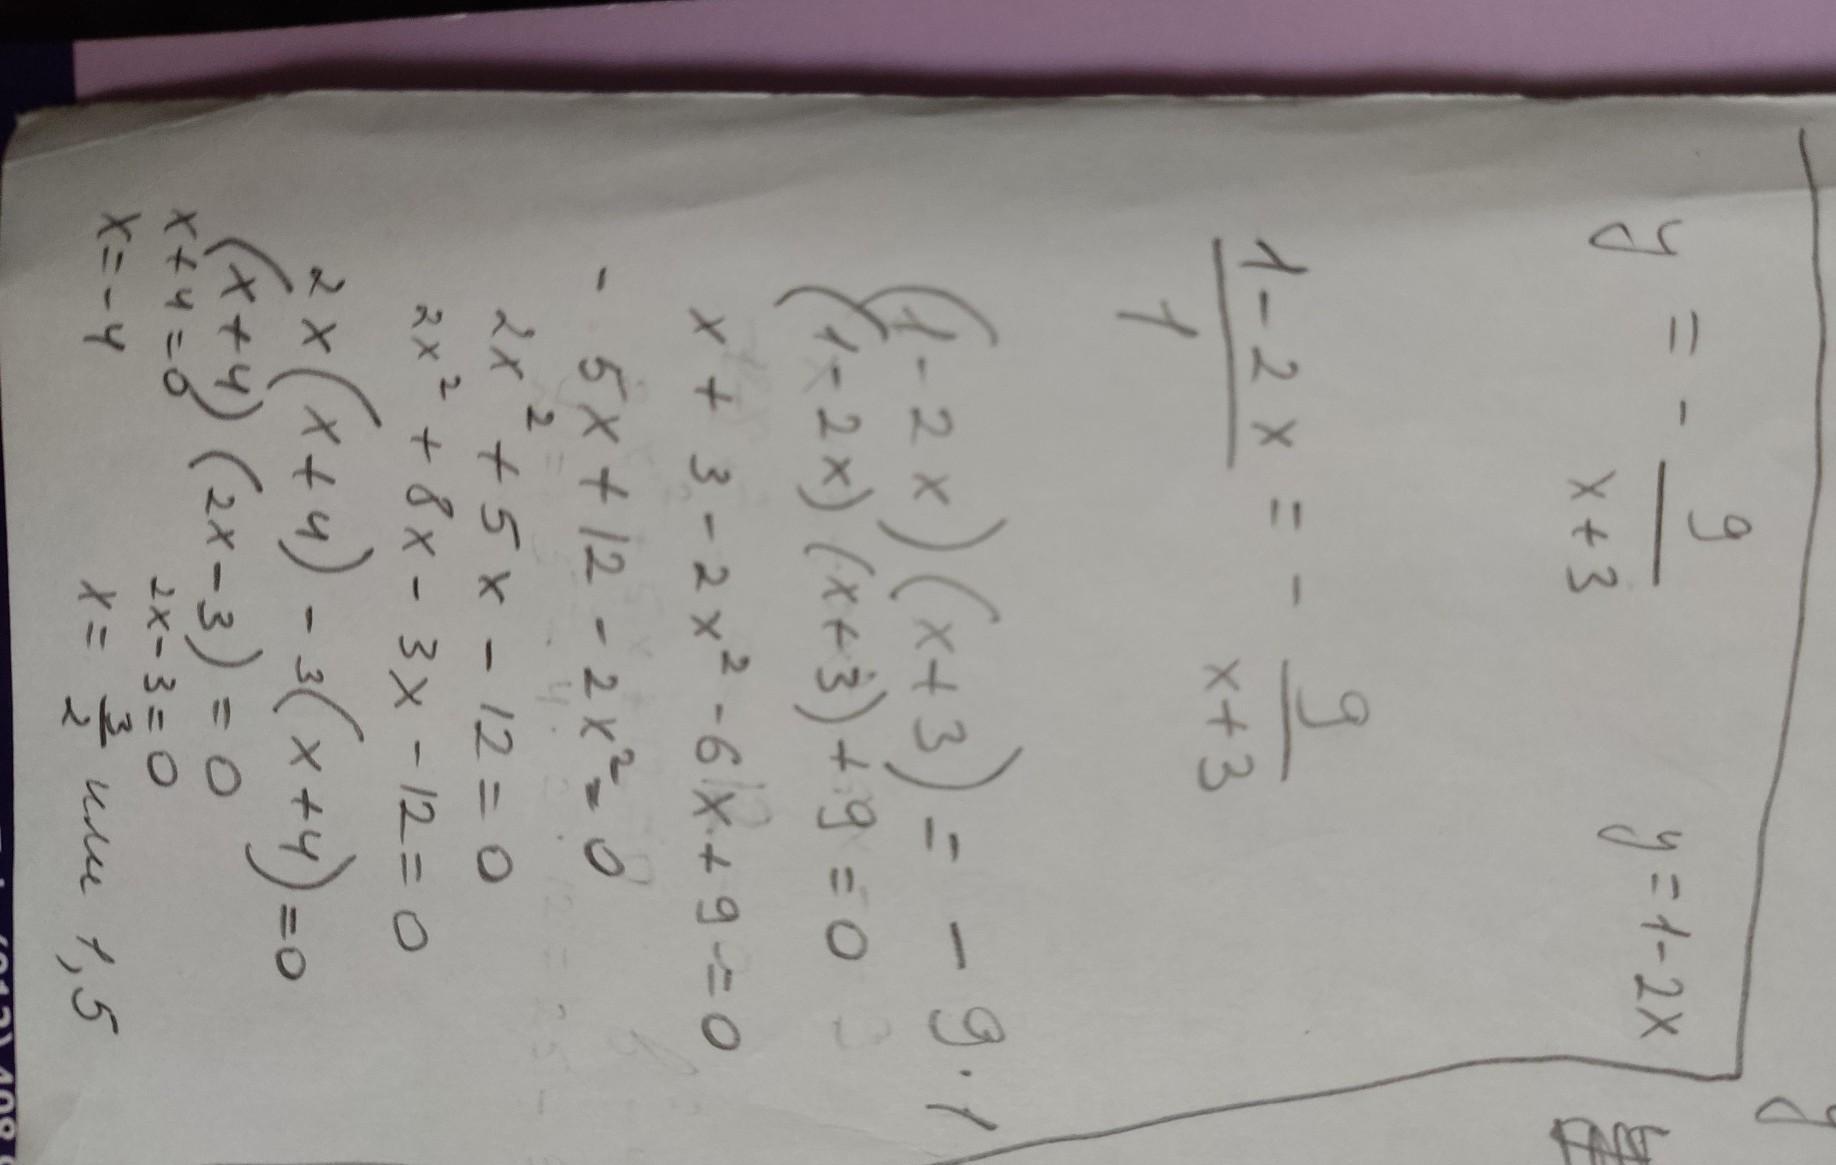 y = - 9/(x+3)    y = 1-2x
(1-2x)/1 = - 9/(x+3)
(1-2x)(x+3) = -9·1
(1-2x)(x+3)+9=0
x+3-2x²-6x+9=0
-5x+12-2x²=0
2x²+5x-12=0
2x²+8x-3x-12=0
2x(x+4)-3(x+4)=0
(x+4)(2x-3)=0
x+4=0    2x-3=0
x=-4    x= 3/2 или 1,5
y